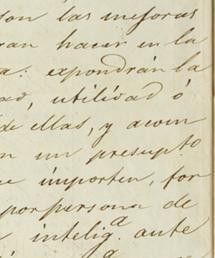 son las mejoras
ran hacer en la
a: expondrán la
dad, utilidad ó
de ellas, y acom
n un presupto
e importen, for
por persona de
intelig.ª ante